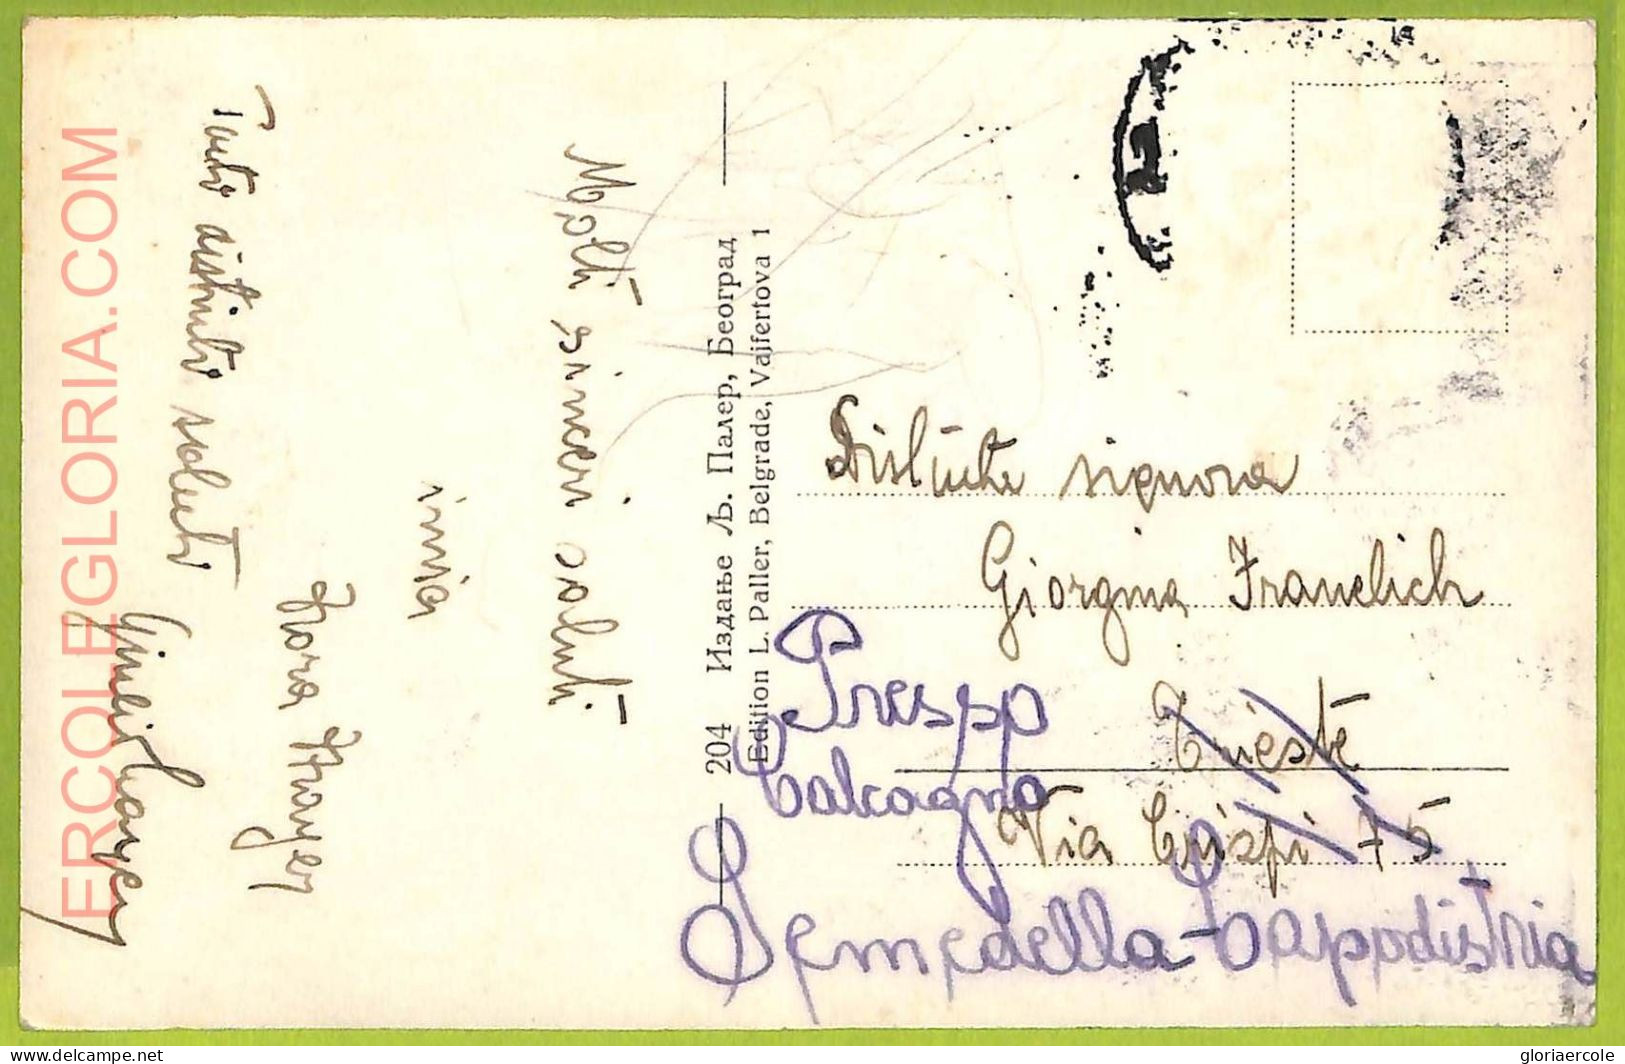 ERCOLEGLORIA.COM
Tanti distinti saluti
Mayer
Nora Mayer
invia
Molti sinceri saluti
204 Издање Љ. Палер, Београд
Edition L. Paller, Belgrade, Vajfertova 1
Distinta signora
Giorgina Franelich
Trieste
Via Crispi 75
Presso
Calcagno
Semedella-Capodistria
delcampe.net
gloriaercole